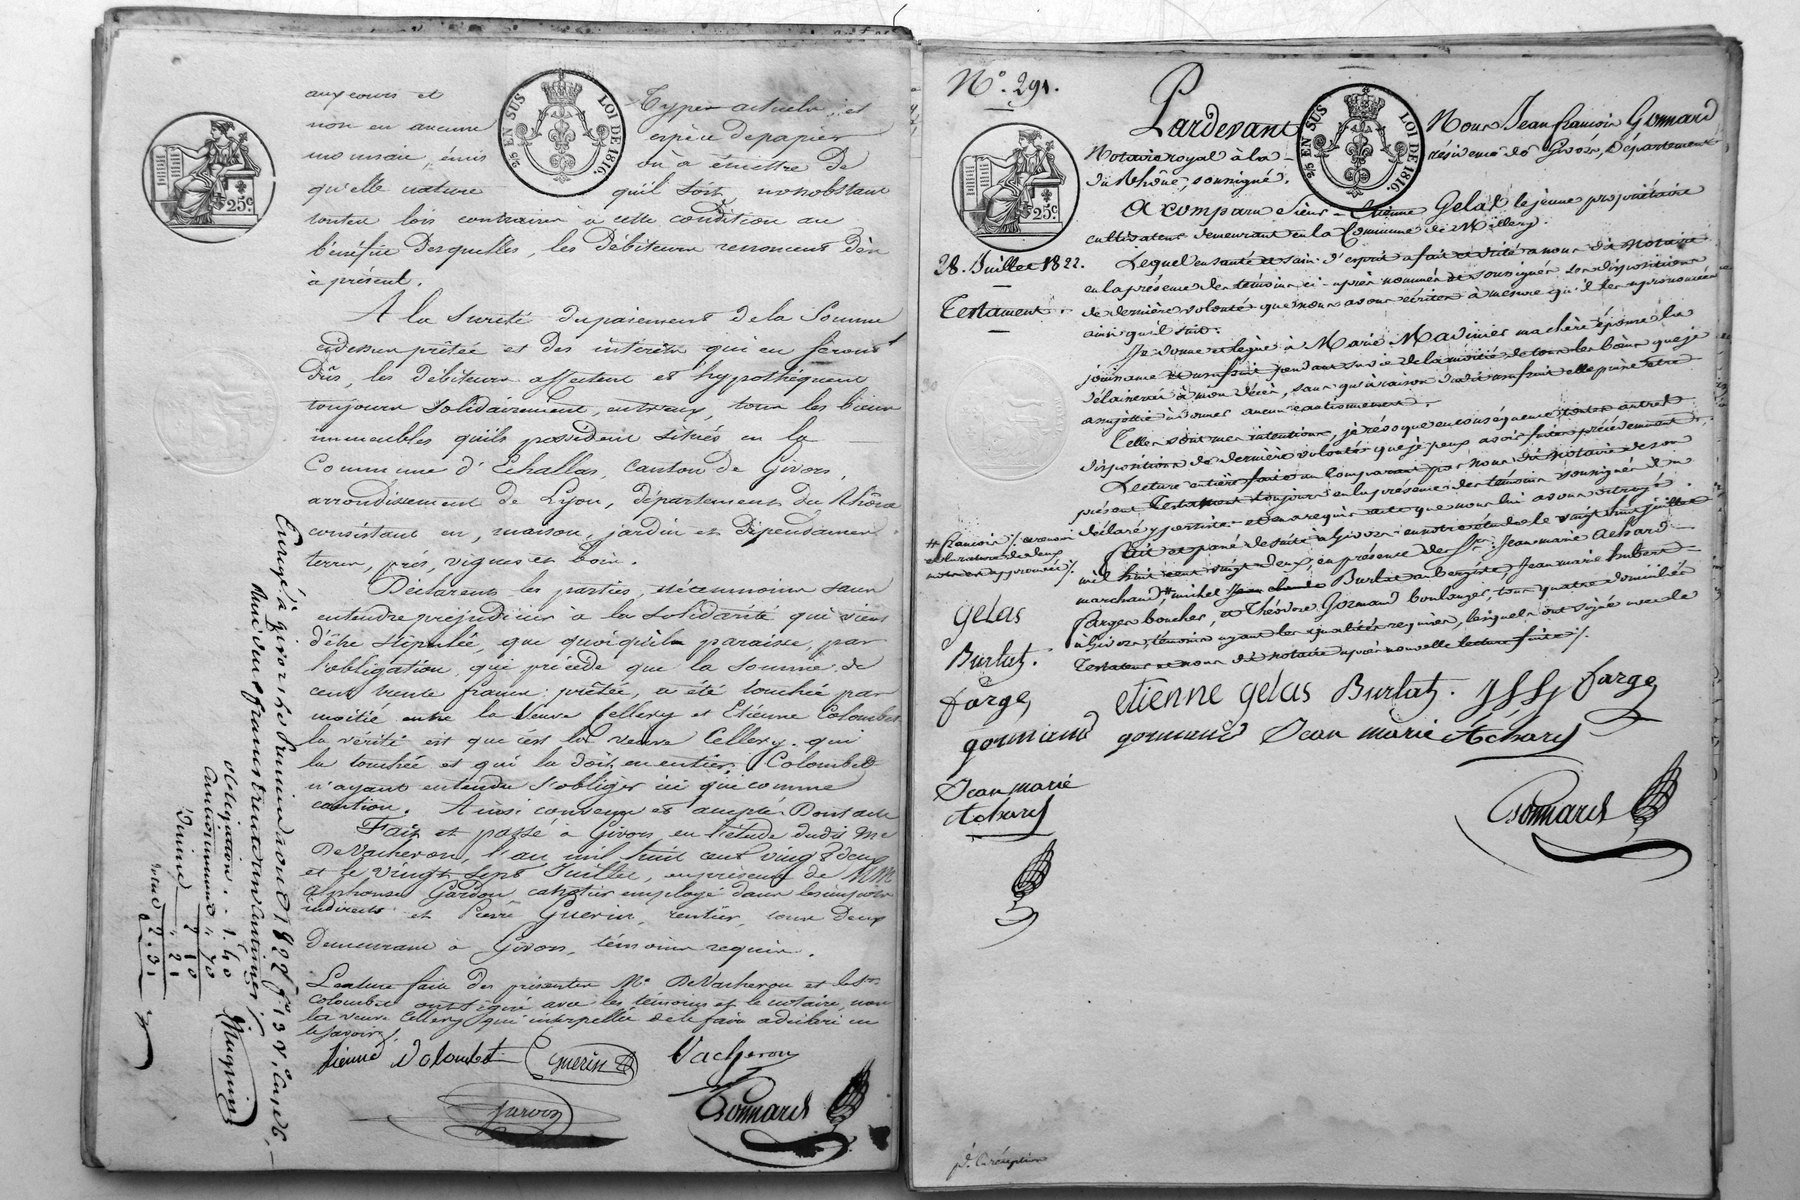 aux cours et Types actuels, et
non en aucune espèce de papier
monnaie, émis ou a émettre de
qu'elle nature qu'il soit, nonobstant
toutes lois contraires à cette condition au
bénéfice desquelles, les débiteurs renoncent dès
à présent.
A la sureté du paiement de la Somme
cidessus prêtée et des intérêts qui en seront
dûs, les débiteurs affectent et hypothéquent
toujours solidairement, entreux, tous les biens
immeubles qu'ils possèdent situés en la
Commune d'Echallas, canton de Givors,
arrondissement de Lyon, département du Rhône
consistant en, maison, jardin et dépendances
terres, prés, vignes et bois.
Déclarent les parties, néanmoins sans
entendre préjudicier à la solidarité qui vient
d'être stipulée, que quoiqu'il paraisse, par
l'obligation qui précède que la somme de
cent trente francs prêtée, a été touchée par
moitié entre la Veuve Cellery et Etienne Colombet
la vérité est que c'est la veuve Cellery qui
la touchée et qui la doit en entier, Colombet
n'ayant entendu s'obliger ici que comme
caution. Ainsi convenu et accepté Dont acte
Fait et passé à Givors, en l'étude dudit Me
DeVacheron, l'an mil huit cent vingt deux
et le vingt sept Juillet, en présence de MM
alphonse Gardon cahotier employé dans les impots
indirects et Pierre Guerin, rentier, tous deux
Demeurant à Givors, témoins requis.
Lecture faite des présentes Mr DeVacheron et led.
Colombet ont signé avec les témoins et le notaire, non
la veuve Cellery qui interpellée de le faire a déclaré ne
le savoir.
Etienne Colombet Guerin Vacheron
Gonnard
25 EN SUS LOI DE 1816
25c
Enregé à givors le
obligation . 1. 40
Cautionnement " 70
2 10
dixme " 21
total 2. 31
N° 291.
25 EN SUS LOI DE 1816
25c
28. Juillet 1822.
Testament
Pardevant Nous Jean françois Gonnard
Notaire royal à la résidence de Givors, Département
du Rhône, soussigné.
A comparu Sieur Etienne Gelas le jeune propriétaire
cultivateur demeurant en la Commune de Millery.
Lequel en santé et sain d'esprit a fait et dicté a nous dit Notaire
en la présence des témoins ci-après nommés et soussignés ses dispositions
de dernière volonté que nous avons écrites à mesure qu'il les a prononcées
ainsi qu'il suit.
Je donne et lègue à Marie Madinier ma chère épouse la
jouissance et usufruit pendant sa vie de la moitié de tous les biens que je
délaisserai à mon décès, sans qu'à raison dudit usufruit elle puisse être
assujettie à donner aucun cautionnement.
Telles sont mes intentions, je révoque en conséquence toutes autres
dispositions de dernière volonté que je peux avoir faites précédemment.
Lecture entière faite au Comparant par nous dit Notaire de son
présent Testament toujours en la présence des témoins soussignés il a
déclaré y persister et en a requis acte que nous lui avons octroyé.
Fait et passé de suite à Givors en notre étude le vingt huit juillet
mil huit cent vingt deux, en présence de Srs Jean marie Achard
marchand # michel Jean claude Burlat aubergiste, Jean marie humbert
farges boucher, et Théodore Gormand boulanger, tous quatre domiciliés
à Givors, témoins ayant les qualités requises, lesquels ont signé avec le
Testateur et nous dit notaire après nouvelle lecture faite ./.
# françois ./. ce renvoi
et la rature de deux
mots est approuvée ./.
gelas
Burlat.
farges
gormand
Jean marie
Achard
etienne gelas Burlat. farges
gormand Jean marie Achard
Gonnard